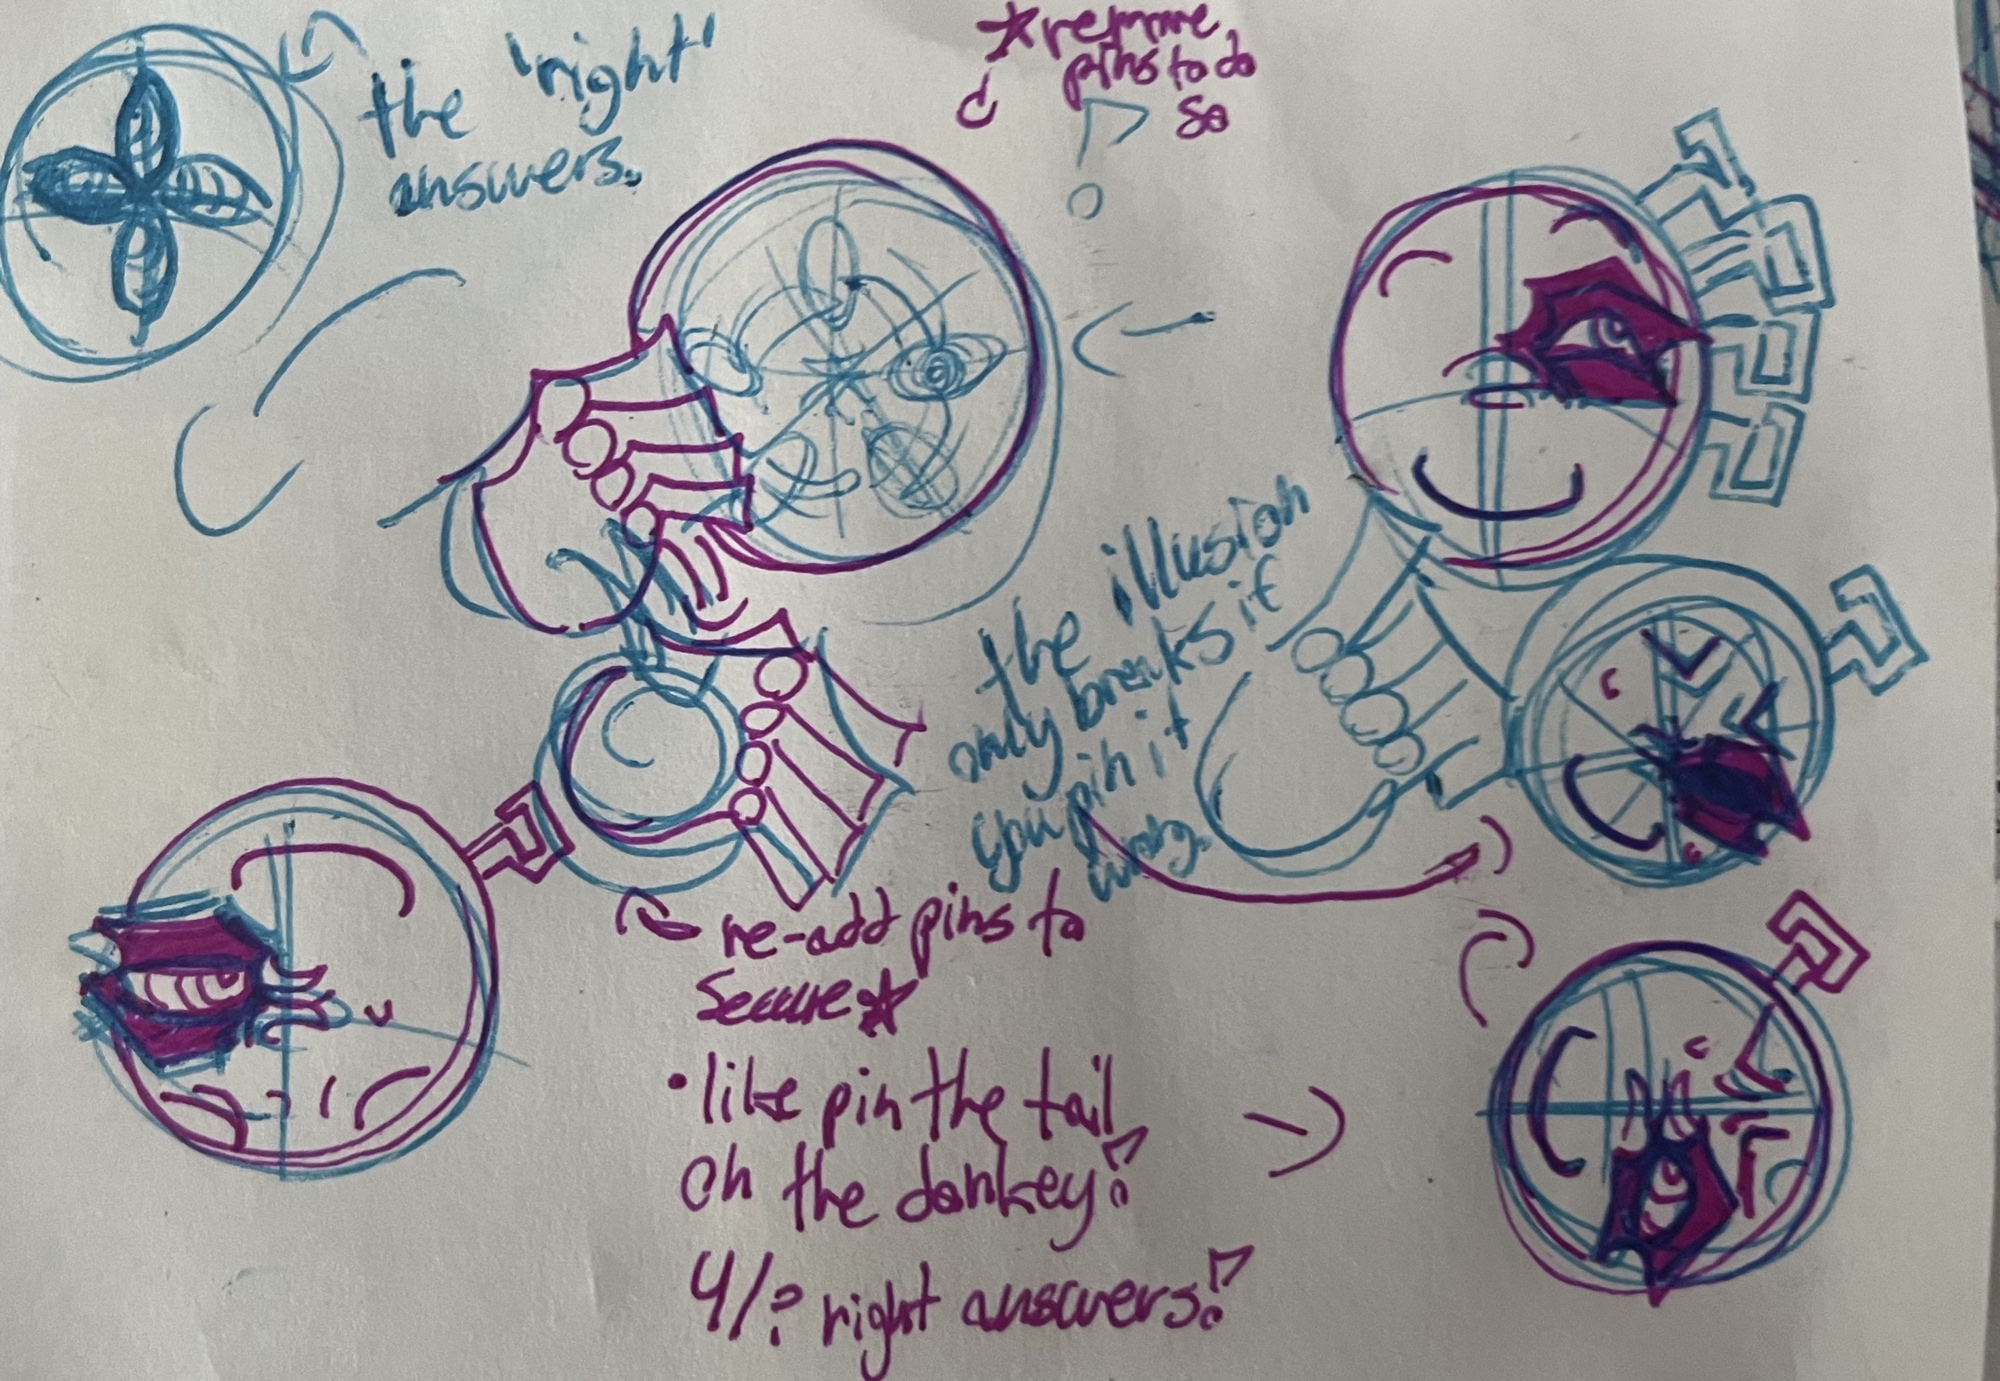 the 'right'
answers.
*remove
pins to do
so
the illusion
only breaks if
you pin it
wrong.
re-add pins to
secure*
•like pin the tail
on the donkey?
4/? right answers?